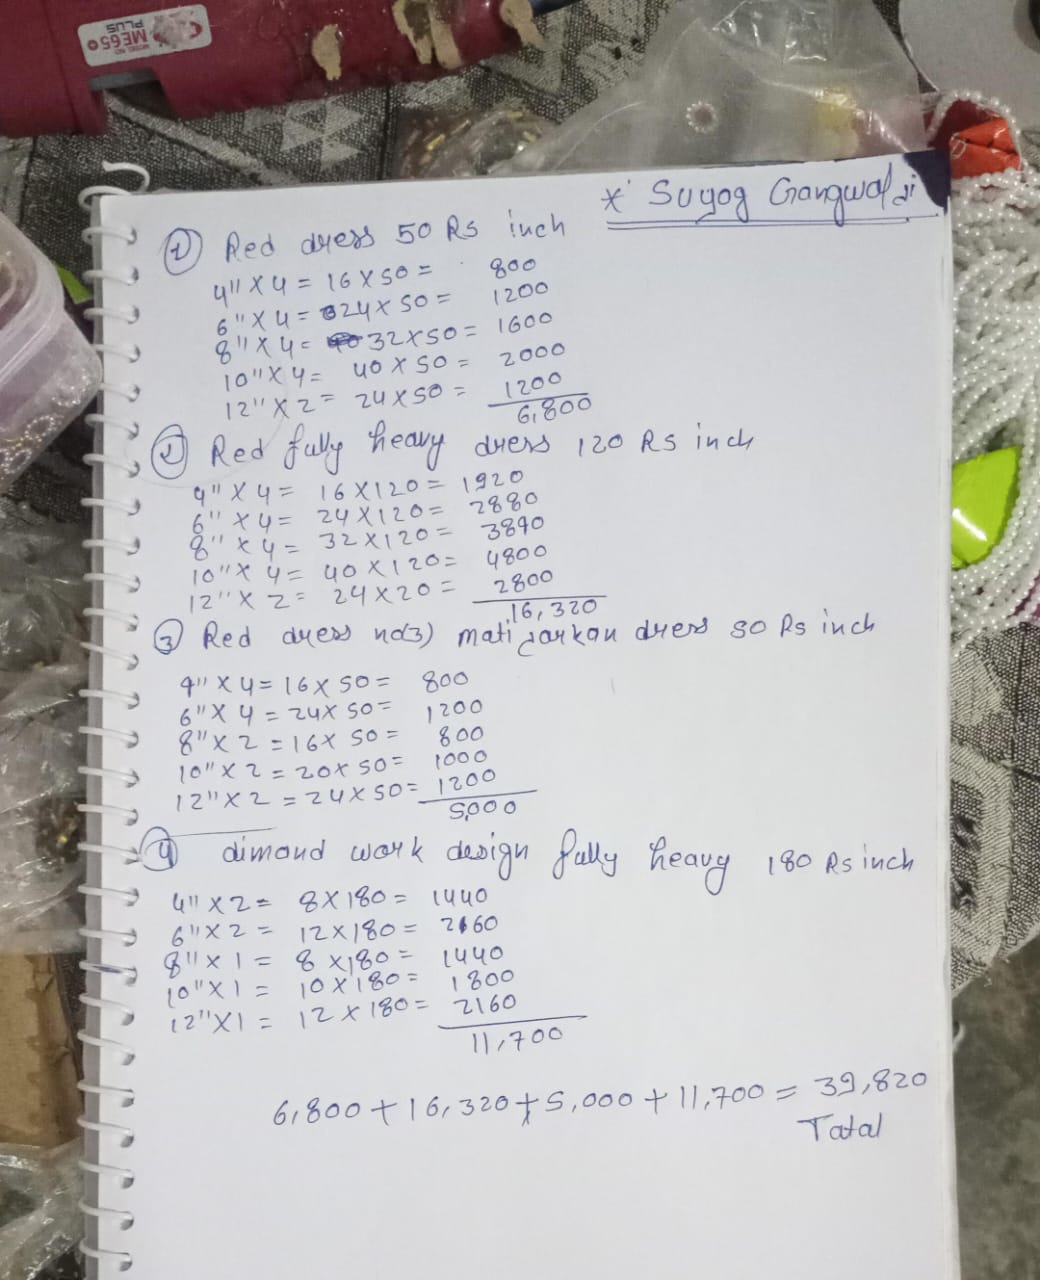 MODEL NO
ME65
PLUS
* Suyog Gangwal ji
1 Red dress 50 Rs inch
4" X 4 = 16 X 50 = 800
6" X 4 = 24 X 50 = 1200
8" X 4 = 32 X 50 = 1600
10" X 4 = 40 X 50 = 2000
12" X 2 = 24 X 50 = 1200
6,800
2 Red fully heavy dress 120 Rs inch
4" X 4 = 16 X 120 = 1920
6" X 4 = 24 X 120 = 2880
8" X 4 = 32 X 120 = 3840
10" X 4 = 40 X 120 = 4800
12" X 2 = 24 X 20 = 2800
16,320
3 Red dress no(3) mati jarkan dress 50 Rs inch
4" X 4 = 16 X 50 = 800
6" X 4 = 24 X 50 = 1200
8" X 2 = 16 X 50 = 800
10" X 2 = 20 X 50 = 1000
12" X 2 = 24 X 50 = 1200
5,000
4 dimond work design fully heavy 180 Rs inch
4" X 2 = 8 X 180 = 1440
6" X 2 = 12 X 180 = 2160
8" X 1 = 8 X 180 = 1440
10" X 1 = 10 X 180 = 1800
12" X 1 = 12 X 180 = 2160
11,700
6,800 + 16,320 + 5,000 + 11,700 = 39,820
Total